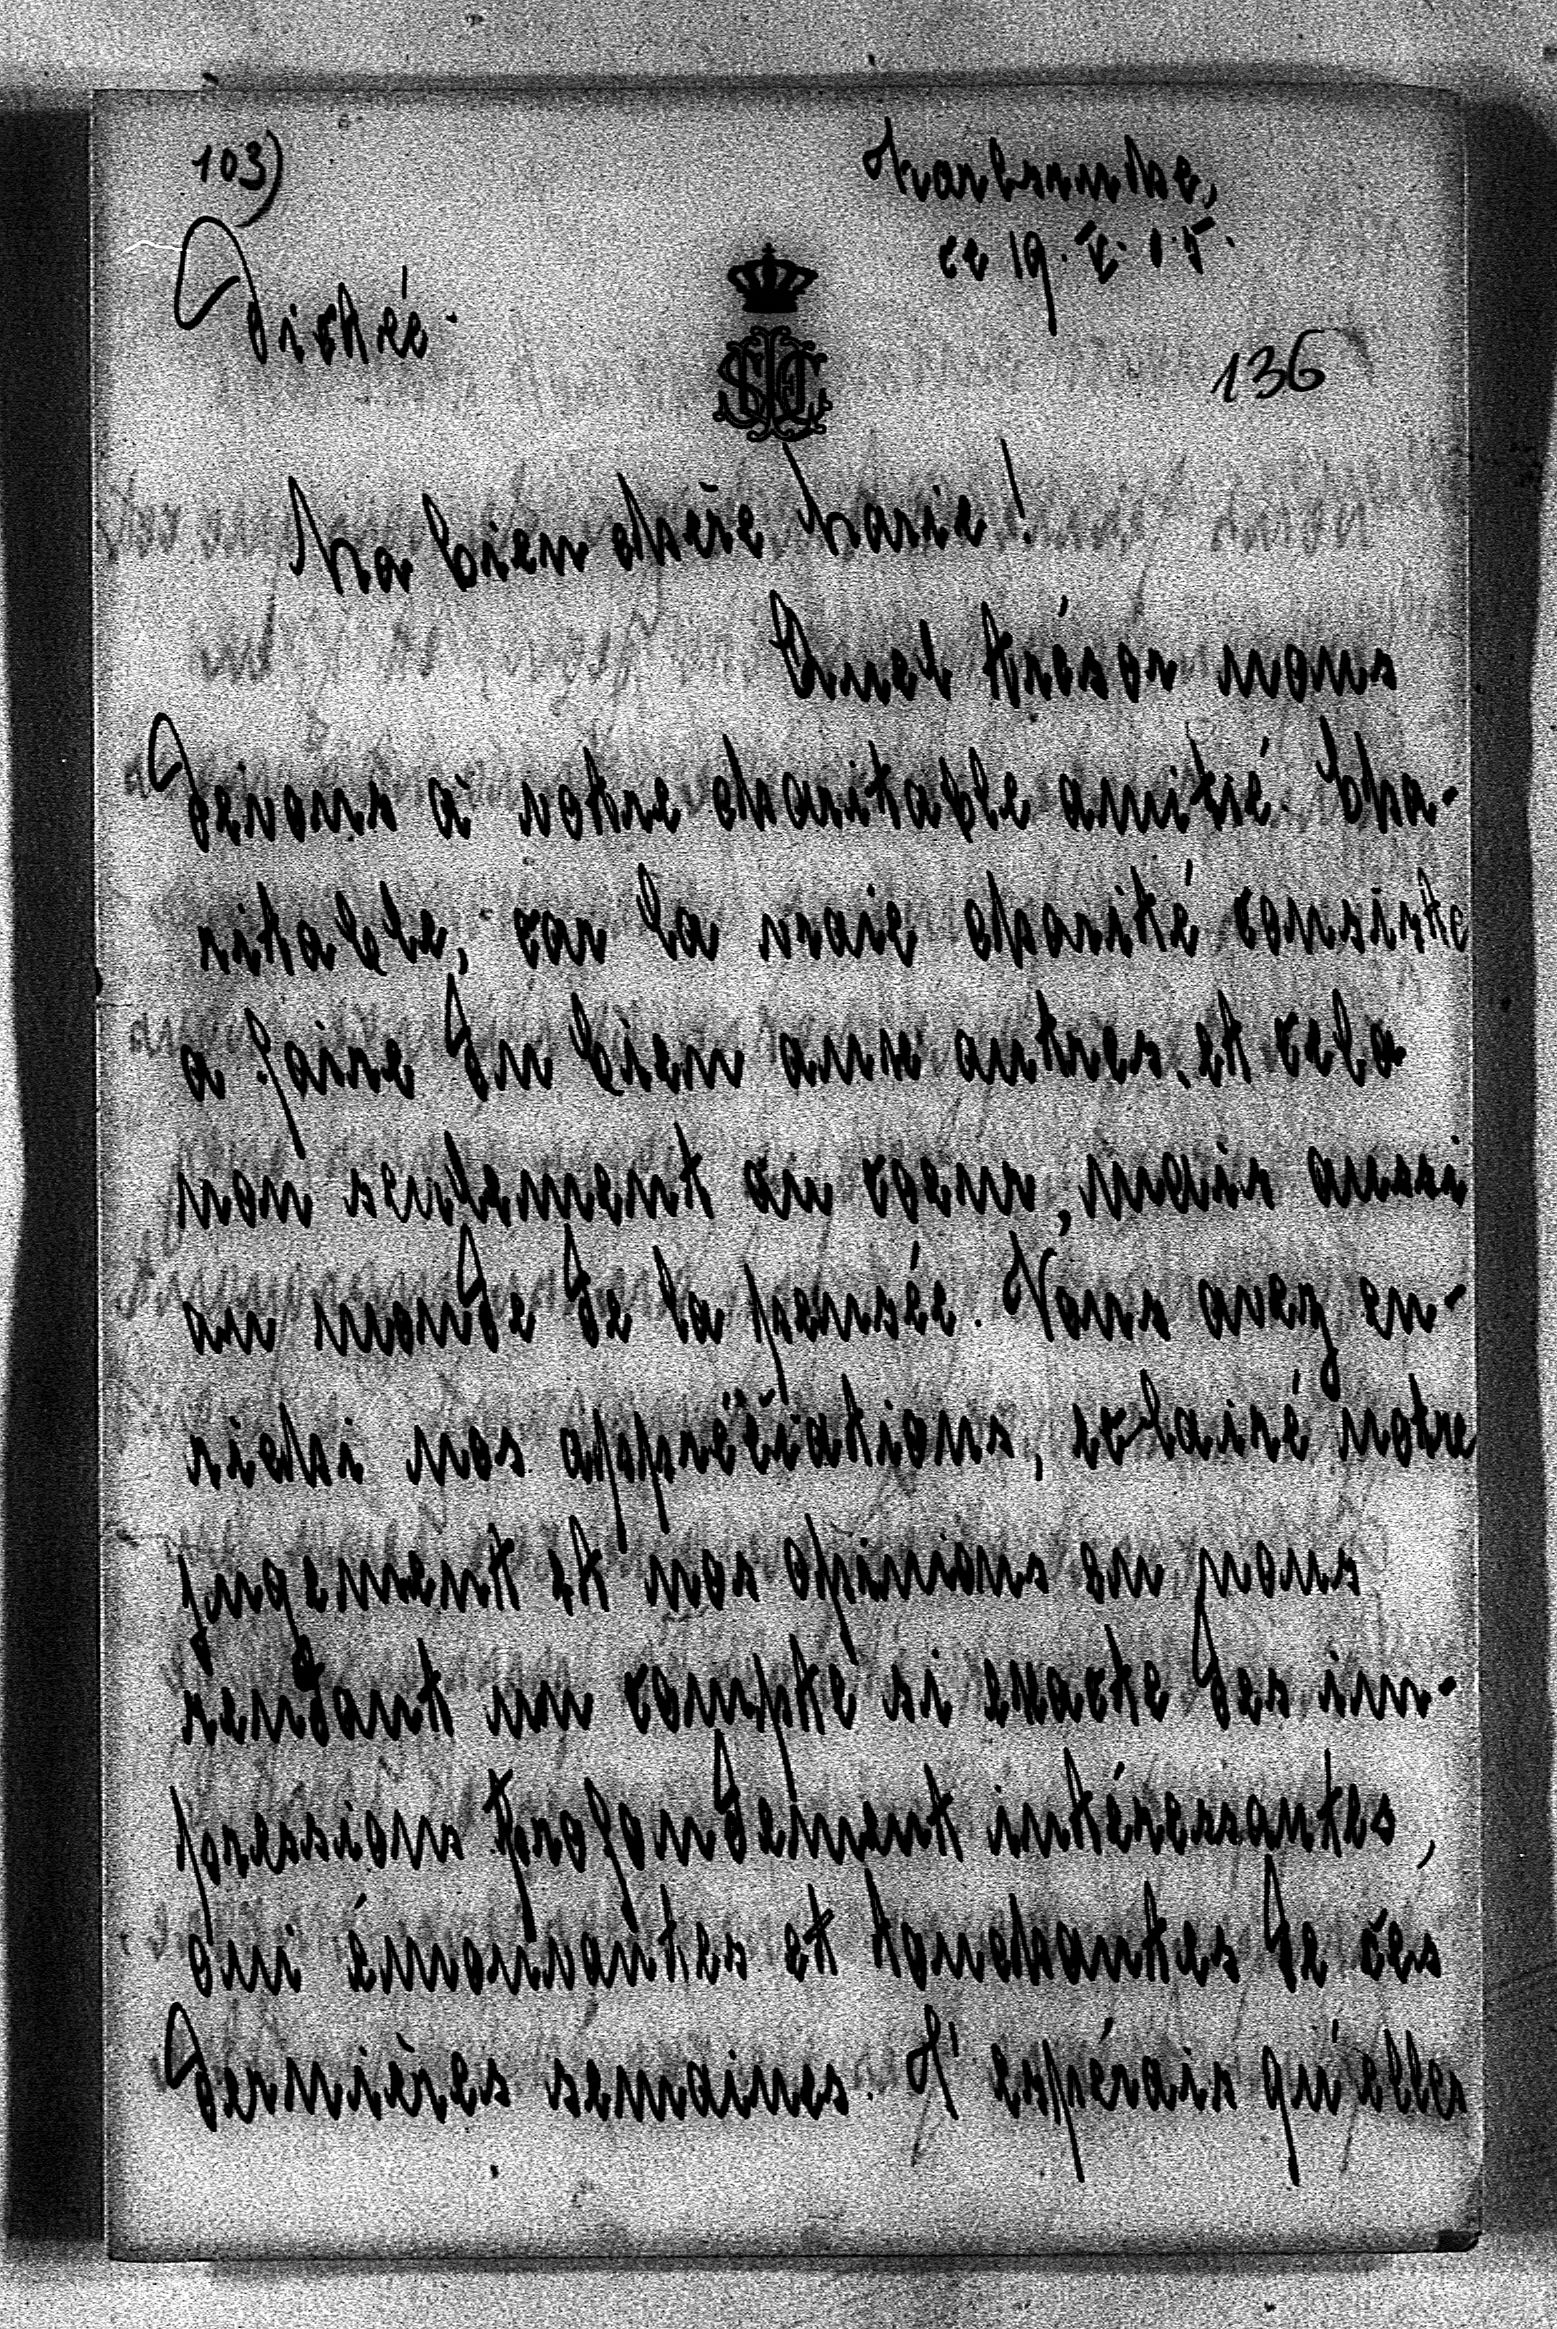 103)
Karlsruhe,
ce 19. V. 05.
Dictée.
136
Ma bien chère Marie!
Quel trésor nous
devons à votre charitable amitié. Cha-
ritable, car la vraie charité consiste
a faire du bien aux autres, et cela
non seulement au coeur, mais aussi
au monde de la pensée. Vous avez en-
richi nos appréciations, éclairé notre
jugement et nos opinions en nous
rendant un compte si exacte des im-
pressions profondement intéressantes,
oui émouvantes et touchantes de ces
dernières semaines. J'espérais qu'elles